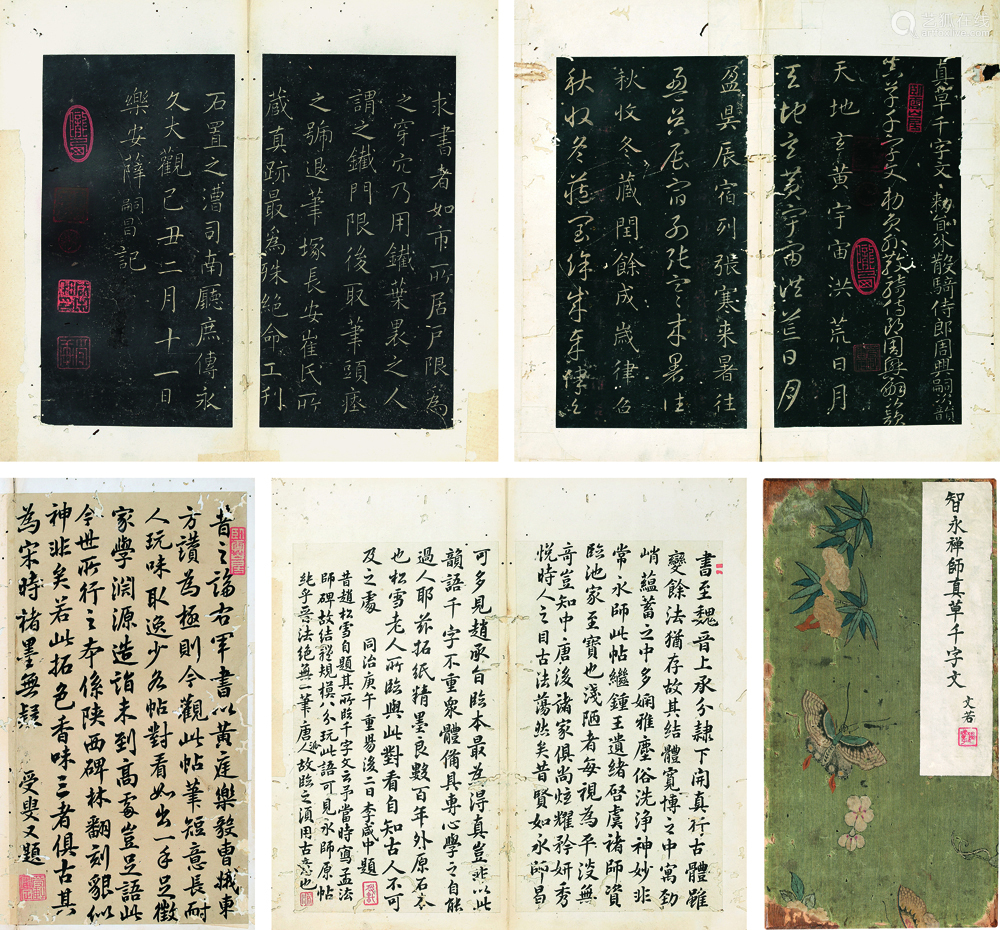 求書者如市所居戶限為
之穿穴乃用鐵葉裹之人
謂之鐵門限後取筆頭瘞
之號退筆塚長安崔氏所
蔵真跡最為殊絕命工刊
石置之漕司南廳庶傳永
久大觀己丑二月十一日
樂安薛嗣昌記
真草千字文 勅員外散騎侍郎周興嗣次韻
真草千字文勅員外散騎侍郎周興嗣次韻
天地玄黃宇宙洪荒日月
天地玄黃宇宙洪荒日月
盈昃辰宿列張寒来暑往
盈昃辰宿列張寒来暑往
秋收冬藏閏餘成歲律呂
秋收冬藏閏餘成歲律呂
昔之論右軍書以黃庭樂毅曹娥東
方讚為極則今觀此帖筆短意長耐
人玩味取逸少各帖對看如出一手足徵
家學淵源造詣未到高處豈足語此
今世所行之本係陝西碑林翻刻貌似
神非矣若此拓色香味三者俱古其
為宋時褚墨無疑 受叟又題
書至魏晉上承分隸下開真行古體雖
變餘法猶存故其結體寬博之中寓勁
峭蘊蓄之中多嫻雅塵俗洗淨神妙非
常永師此帖繼鍾王遺緒啓虞褚師資
臨池家至寶也淺陋者每視為平淡無
奇豈知中唐後諸家俱尚炫耀矜妍秀
悅時人之目古法蕩然矣昔賢如永師昌
可多見趙承旨臨本最為得真豈非以此
韻語千字不重衆體備具專心學之自能
過人耶茲拓紙精墨良數百年外原石本
也松雪老人所臨與此對看自知古人不可
及之處 同治庚午重昜後二日李咸中題
昔趙松雪自題其所臨千字文云予當時寫孟法
師碑故結體規模八分玩此語可見永師原帖
純乎晉法絕無一筆唐人故臨之須用古意也
智永禪師真草千字文
文若
艺狐在线
artfoxlive.com